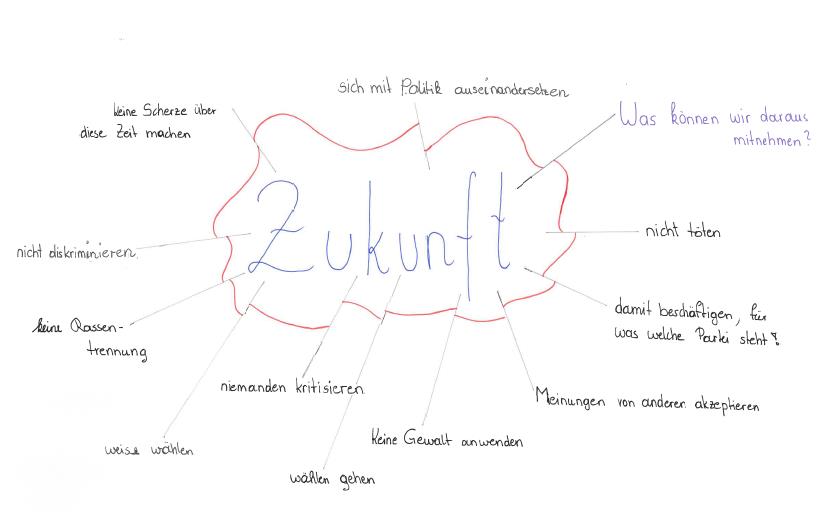 sich mit Politik auseinandersetzen
keine Scherze über
diese Zeit machen
Was können wir daraus
mitnehmen?
Zukunft
nicht töten
nicht diskriminieren
damit beschäftigen, für
was welche Partei steht?
keine Rassen-
trennung
niemanden kritisieren
Meinungen von anderen akzeptieren
Keine Gewalt anwenden
weise wählen
wählen gehen